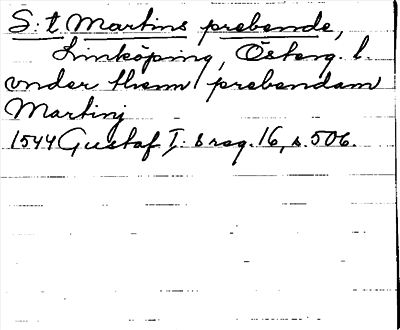 S:t Martins prebende,
Linköping, Österg. l.
vnder then prebendam
Martinj
1544 Gustaf I: s reg. 16, s. 506.